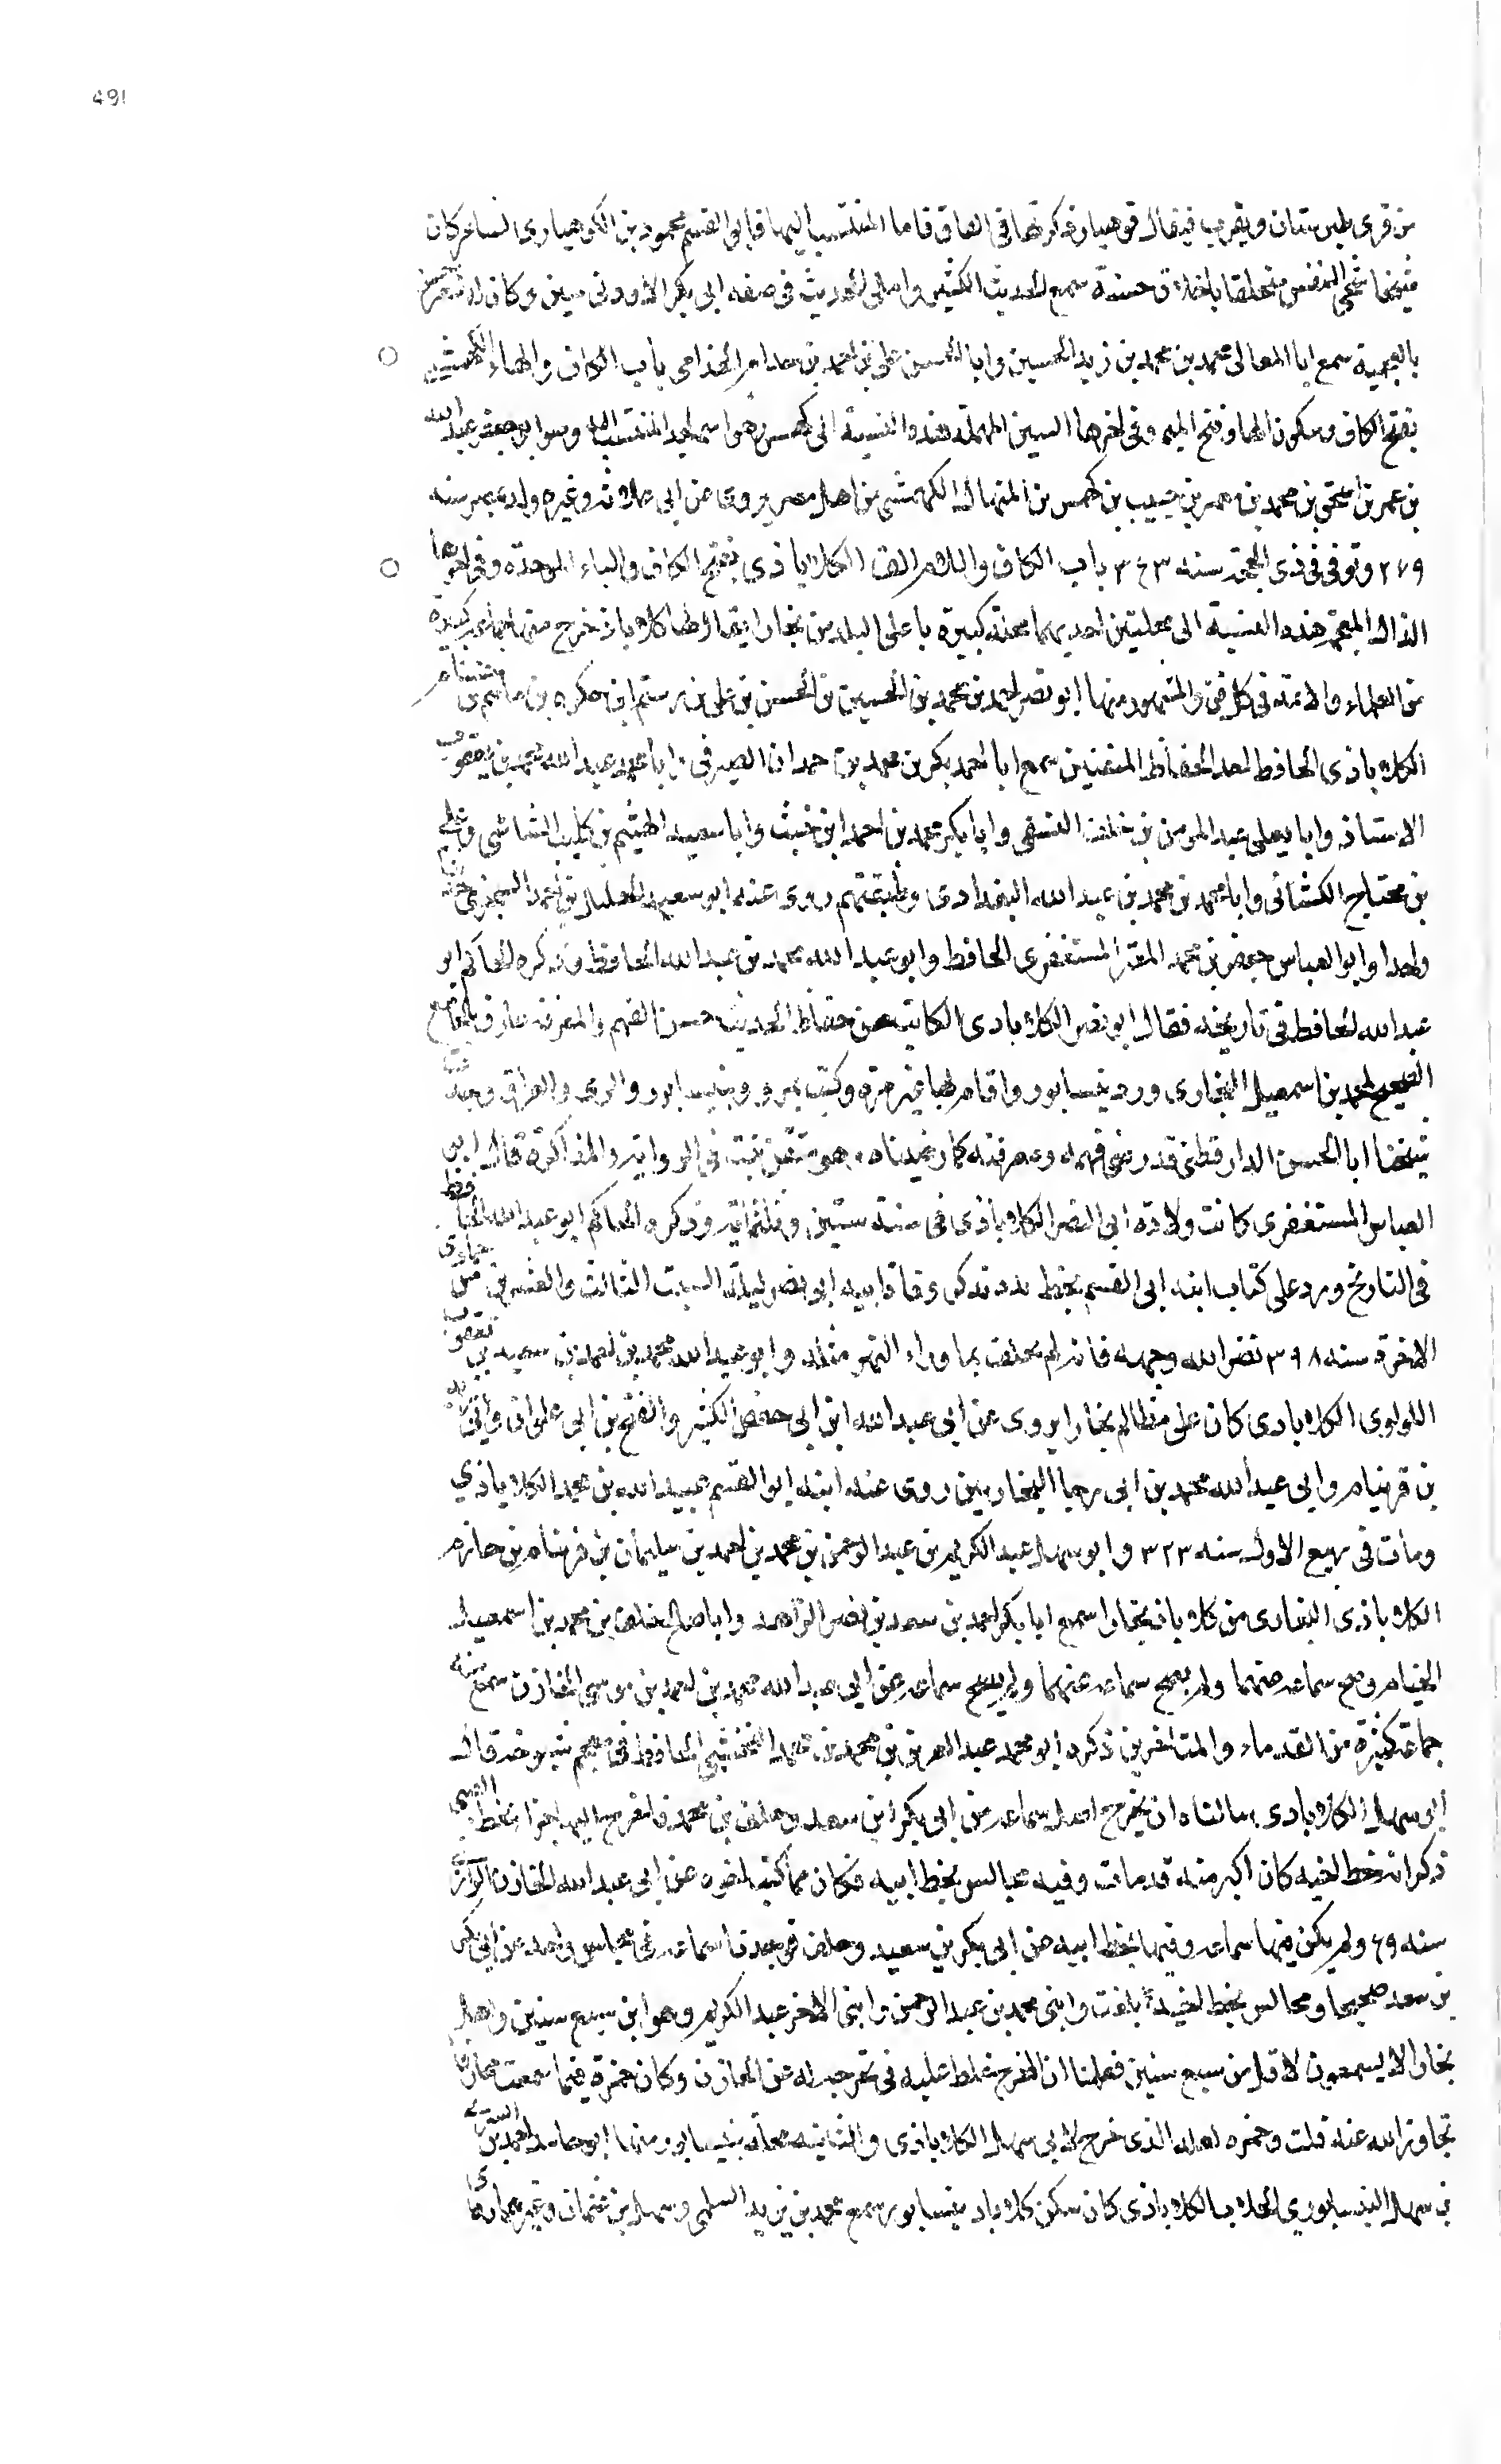 491
من قرى طبرستان ويعرب فيقال قوهيار ذكرتها في القاف فاما المنتسب اليها فابو القسم محمود بن الكوهياري الساعر كان
شيخا سخي النفس متخلقا باخلاق حسنة سمع الحديث الكثير واملى الحديث في صفه ابي بكر الاودني سنين وكان له شعر حسن
بالعجمية سمع ابا المعالي محمد بن محمد بن زيد الحسين وابا الحسن علي بن احمد بن خدام الخذامي باب الكاف والهاء الكهمشى
بفتح الكاف وسكون الها وفتح الميم وفي اخرها السين المهملة هذه النسبة الى كهمس وهو اسم لجد المنتسب اليه وهو ابو جعفر عبد الله
بن عمر بن اسحق بن محمد بن معمر بن حبيب بن كهمس بن المنهال الكهمشى من اهل مصر يروى عن ابي علاثة وغيره ولد بمصر سنه
٢٧٩ وتوفى في ذي الحجة سنه ٣٤٣ باب الكاف واللام الف الكلاباذى بفتح الكاف والباء الموحدة وفي اخرها
الذال المعجمة هذه النسبة الى محلتين احديهما محلة كبيرة باعلى البلد من بخارا يقال لها كلاباذ خرج منها جماعة كبيرة
من العلماء والائمة في كل فن والمشهور منها ابو نصر احمد بن محمد بن الحسين بن الحسن بن علي بن رستم ابن
الكلاباذى الحافظ احد الحفاظ المتقنين سمع ابا احمد بكر بن محمد بن حمدان الصيرفى وابا محمد عبد الله بن محمد بن يعقوب
الاستاذ وابا يعلى عبد المومن بن خلف النسفى وابا بكر محمد بن احمد ابن خنب وابا سعيد الهيثم بن كليب الشاشى وعلي
بن محتاج الكشانى وابا جعفر محمد بن محمد بن عبد الله البغدادى وطبقتهم روى عنه ابو سعيد الخليل بن احمد السجزي حديثا
واحدا وابو العباس جعفر بن محمد المعتز المستغفرى الحافظ وابو عبد الله محمد بن عبد الله الحافظ وذكره الحاكم ابو
عبد الله الحافظ في تاريخه فقال ابو نصر الكلابادى الكاتب من حفاظ الحديث حسن الفهم والمعرفة عارف بالجامع
الصحيح لمحمد بن اسمعيل البخارى ورد نيسابور واقام بها غير مرة وكتب بمرو ونيسابور والرى والعراق وجدت
شيخنا ابا الحسن الدارقطنى قد رضى فهمه ومعرفته كما رضيناه وهو متقن ثبت في الرواية والمذاكرة قال ابو
العباس المستغفرى كانت ولادة ابى النصر الكلاباذى في سنة ستين وثلثماية وذكره الحاكم ابو عبد الله الحافظ
في التاريخ ورد على كتاب ابنه ابى القسم بخط يده تذكر وفاة ابيه ابو نصر ليلة السبت الثالث والعشرين من جمادى
الاخرة سنه ٣٩٨ نضر الله وجهه فانه لم يخلف بما وراء النهر مثله وابو عبد الله محمد بن احمد بن سعيد بن يعقوب
اللولوى الكلابادى كان على مظالم بخارا يروى عن ابي عبد الله ابن ابى حفص الكبير والفتح بن ابى علوان وابى
بن قرينام وابى عبد الله محمد بن ابى رجا البخاريين روى عنه ابنه ابو القسم عبيد الله بن محمد الكلاباذي
ومات في ربيع الاول سنه ٣٢٣ وابو سهل عبد الكريم بن عبد الرحمن بن محمد بن احمد بن سليمان بن فرينام بن حازم
الكلاباذى البخارى من كلاباذ بخارا سمع ابا بكر احمد بن سعد بن نصر الزاهد وابا صالح خلف بن محمد بن اسمعيل
الخيام وصح سماعه منهما ولم يصح سماعه عن ابى عبد الله محمد بن احمد بن موسى الخازن سمع منه
جماعة كثيرة من القدماء والمتاخرين ذكره ابو محمد عبد العزيز بن محمد بن محمد النخشبى الحافظ في معجم شيوخه قال
ابو سهل الكلابادى سالناه ان يخرج اصل سماعه من ابى بكر ابن سعد وخلف بن محمد فاخرج الينا اجزا بخط
ذكر انه خط اخيه كان اكبر منه قد مات وفيه مجالس بخط ابيه فكان مما كتب اخوه عن ابى عبد الله الخازن الرازى
سنه ٤٩ ولم يكن فيها سماعه وفيها بخط ابيه عن ابى بكر بن سعيد وخلف فوجدنا سماعه في مجلس واحد عن ابى بكر
بن سعد صحيحا ومجالس بخط اخيه بلغت وابنى محمد بن عبد الرحمن وابنى الاخر عبد الكريم وهو ابن سبع سنين واهل
بخارا لا يسمعون لاقل من سبع سنين فعلمنا ان المخرج غلط عليه في تخريجه له عن الخازن وكان حمزة فيما سمعت
تجاوز الله عنه قلت وحمزه لعله الذى خرج لابى سهل الكلاباذى والثانيه محلة بنيسابور منها ابو حامد احمد بن السرى
بن سهل النيسابوري الجلاب الكلاباذى كان سكن كلاباد نيسابور سمع محمد بن يزيد السلمى وسهل بن عثمان وغيرهما روى